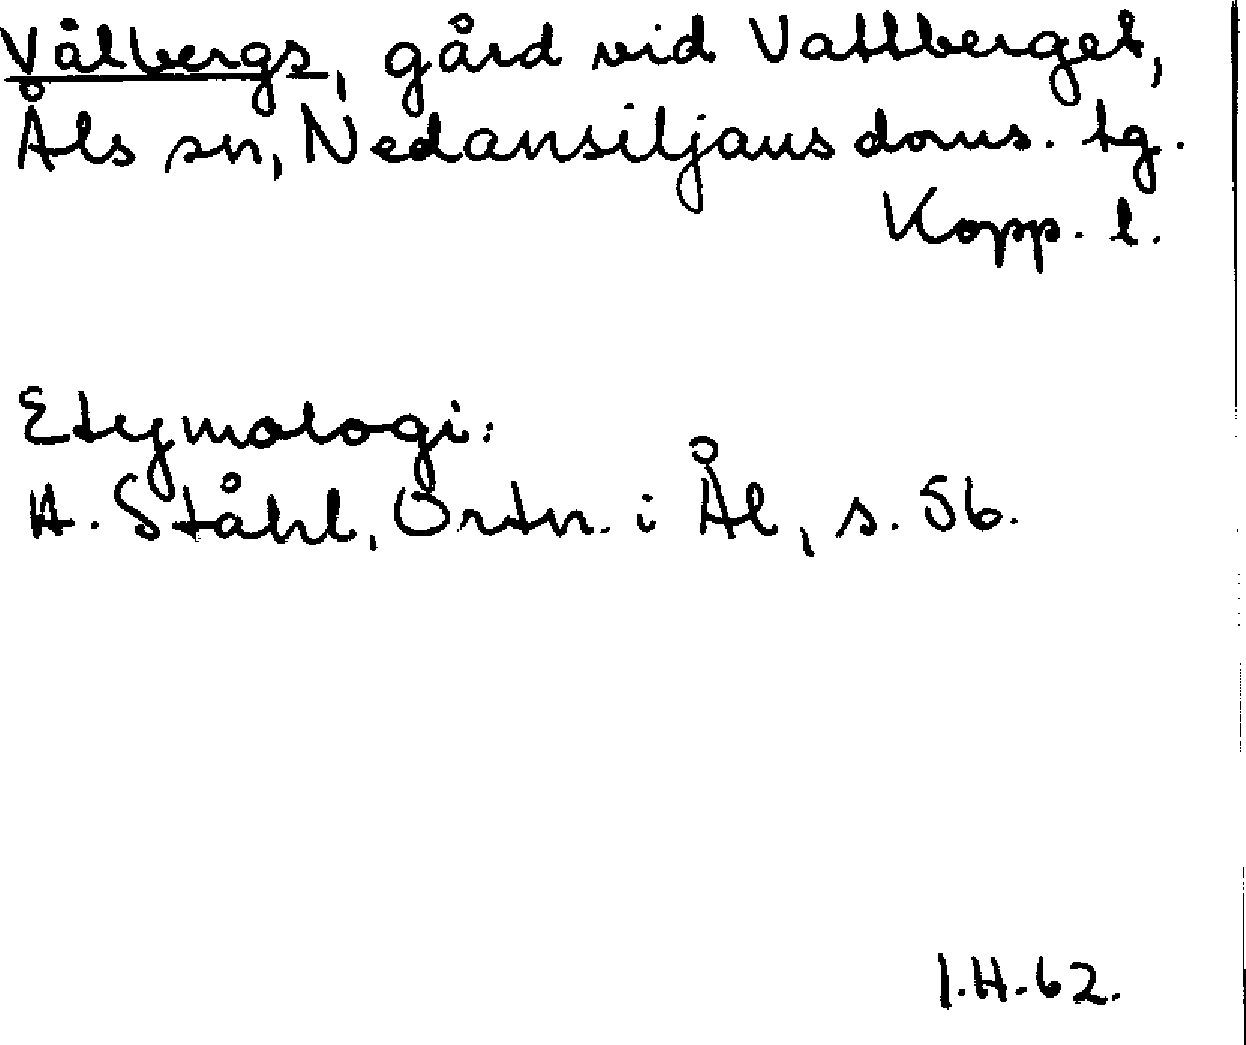 Vålbergs, gård vid Vattberget,
Åls sn, Nedansiljans doms. tg.
Kopp. l.
Etymologi:
H. Ståhl, Ortn. i Ål, s. 56.
I.H.62.